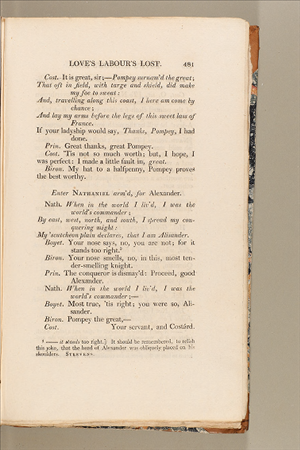 LOVE'S LABOUR'S LOST. 481
Cost. It is great, sir;—Pompey surnam'd the great;
That oft in field, with targe and shield, did make
my foe to sweat:
And, travelling along this coast, I here am come by
chance;
And lay my arms before the legs of this sweet lass of
France.
If your ladyship would say, Thanks, Pompey, I had
done.
Prin. Great thanks, great Pompey.
Cost. 'Tis not so much worth; but, I hope, I
was perfect: I made a little fault in, great.
Biron. My hat to a halfpenny, Pompey proves
the best worthy.
Enter NATHANIEL arm'd, for Alexander.
Nath. When in the world I liv'd, I was the
world's commander;
By east, west, north, and south, I spread my con-
quering might:
My 'scutcheon plain declares, that I am Alisander.
Boyet. Your nose says, no, you are not; for it
stands too right.²
Biron. Your nose smells, no, in this, most ten-
der-smelling knight.
Prin. The conqueror is dismay'd: Proceed, good
Alexander.
Nath. When in the world I liv'd, I was the
world's commander;—
Boyet. Most true, 'tis right; you were so, Ali-
sander.
Biron. Pompey the great,—
Cost. Your servant, and Costard.
² —— it stands too right.] It should be remembered, to relish
this joke, that the head of Alexander was obliquely placed on his
shoulders. STEEVENS.